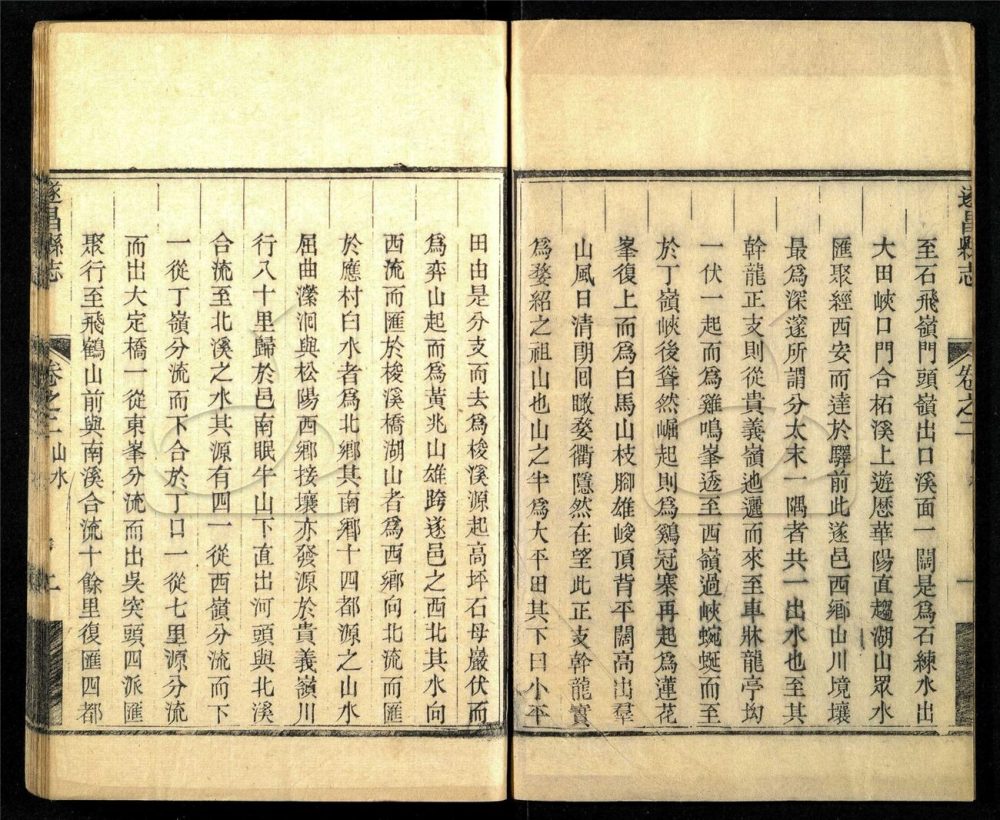 遂昌縣志
卷之二
一
至石飛嶺門頭嶺出口溪面一闊是爲石練水出
大田峽口門合柘溪上遊歷華陽直趨湖山眾水
匯聚經西安而達於驛前此遂邑西鄉山川境壤
最爲深邃所謂分太末一隅者共一出水也至其
幹龍正支則從貴義嶺迆邐而來至車牀龍亭坳
一伏一起而爲雞鳴峯透至西嶺過峽蜿蜒而至
於丁嶺峽後聳然崛起則爲鷄冠寨再起爲蓮花
峯復上而爲白馬山枝腳雄峻頂背平闊高出羣
山風日清朗囘瞰婺衢隱然在望此正支幹龍實
爲婺紹之祖山也山之半爲大平田其下曰小平
田由是分支而去爲梭溪源起高坪石母巖伏而
爲弈山起而爲黃兆山雄跨遂邑之西北其水向
西流而匯於梭溪橋湖山者爲西鄉向北流而匯
於應村臼水者爲北鄉其南鄉十四都源之山水
屈曲瀠洄與松陽西鄉接壤亦發源於貴義嶺川
行八十里歸於邑南眠牛山下直出河頭與北溪
合流至北溪之水其源有四一從西嶺分流而下
一從丁嶺分流而下合於丁口一從七里源分流
而出大定橋一從東峯分流而出吳突頭四派匯
聚行至飛鶴山前與南溪合流十餘里復匯四都
遂昌縣志
卷之二
山水